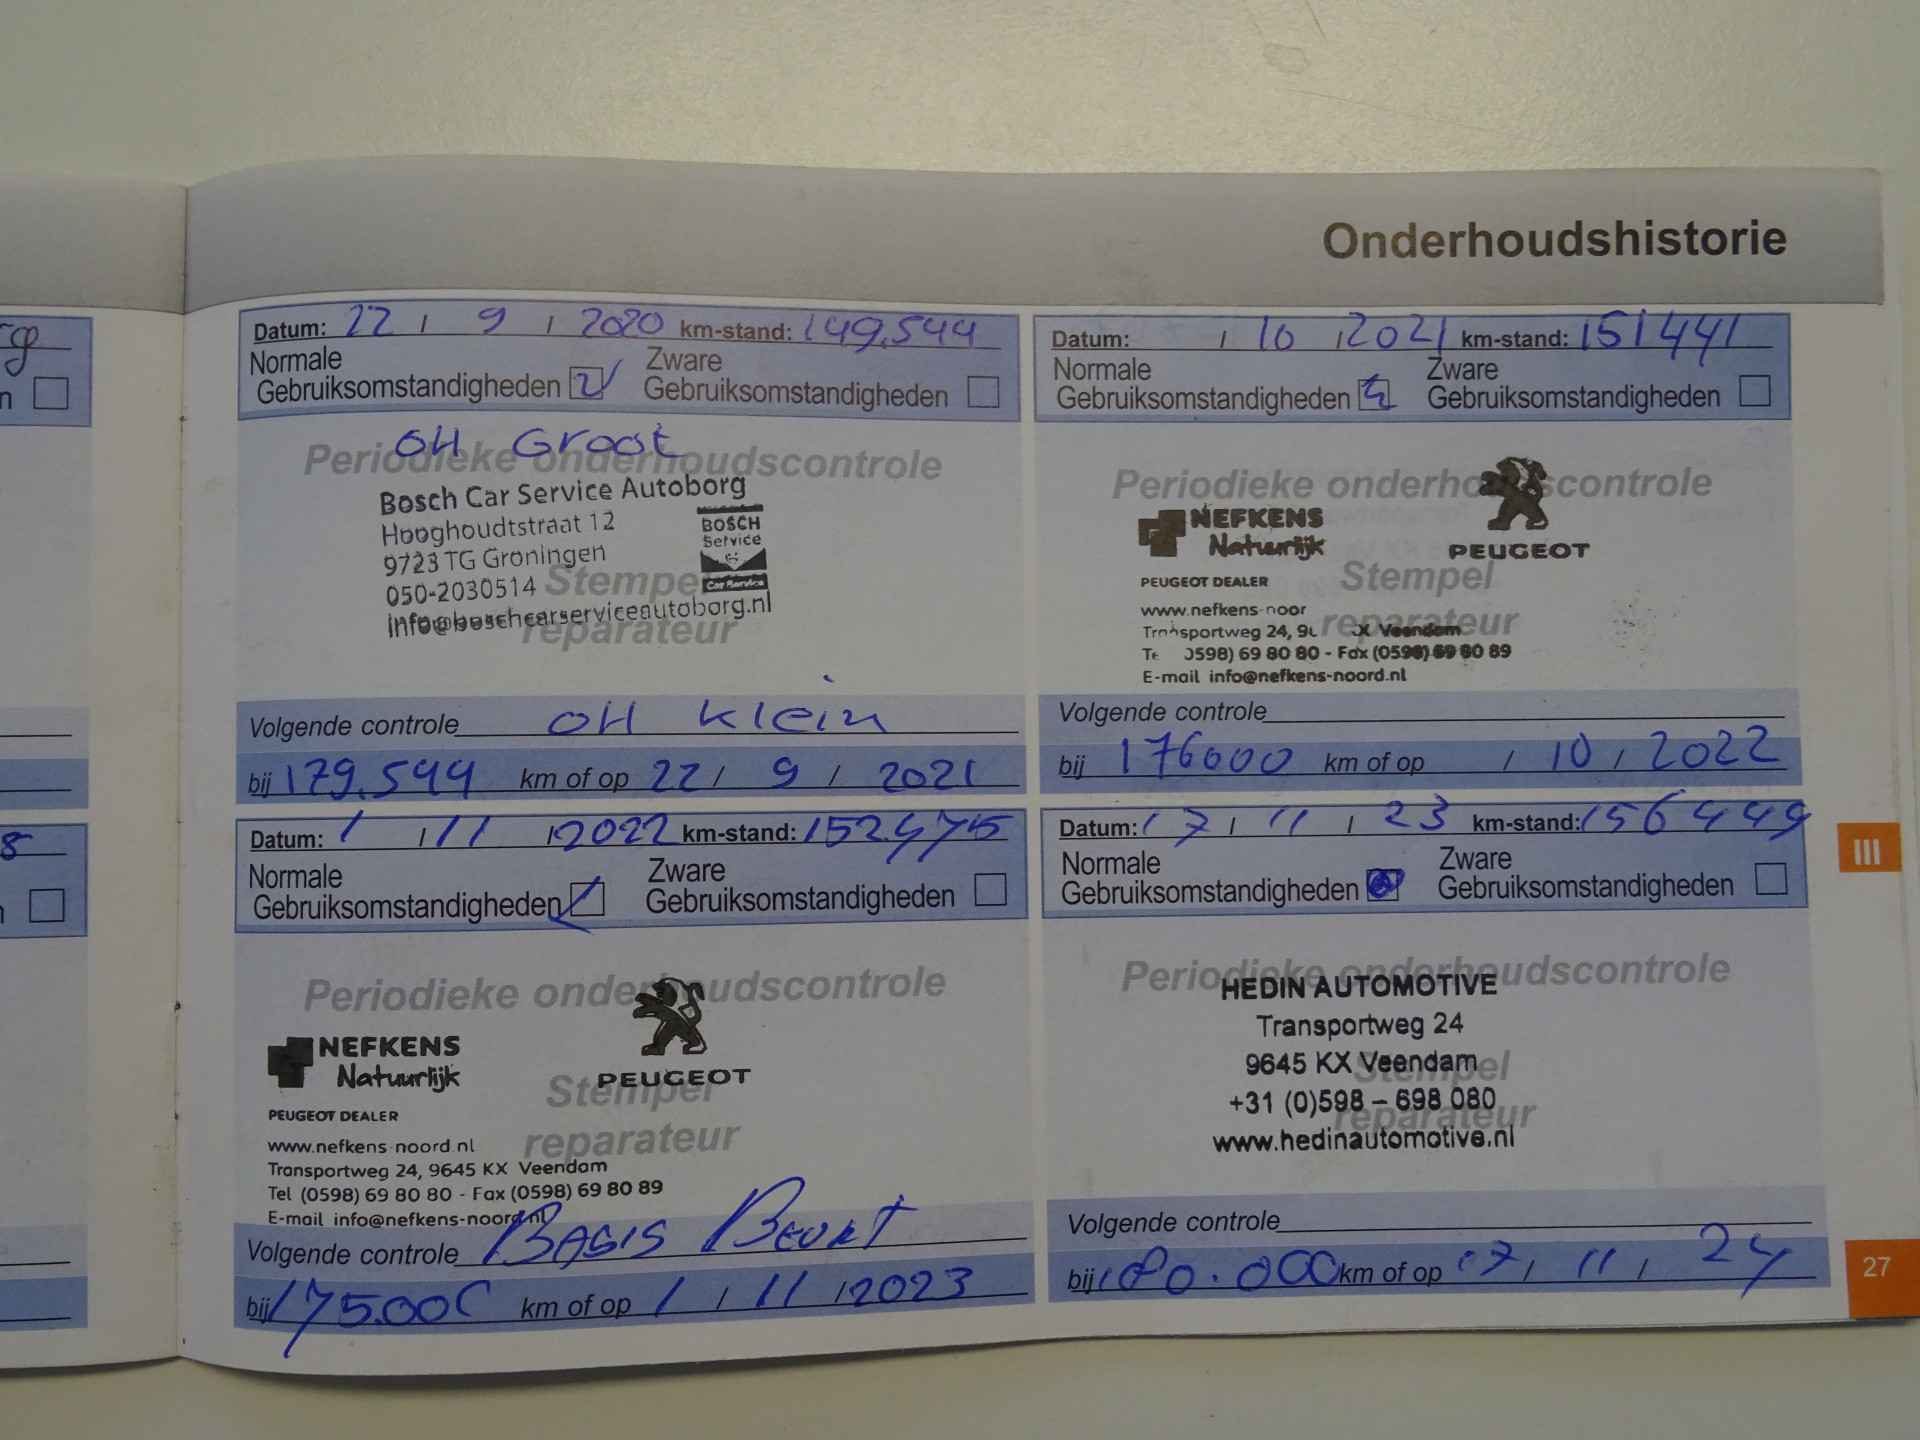 Onderhoudshistorie
Datum: 22 / 9 / 2020 km-stand: 149.544
Normale
Gebruiksomstandigheden
Zware
Gebruiksomstandigheden
OH Groot
Periodieke onderhoudscontrole
Bosch Car Service Autoborg
Hooghoudtstraat 12
9723 TG Groningen
050-2030514
info@boschcarserviceautoborg.nl
BOSCH
Service
Car Service
Stempel
reparateur
Volgende controle OH Klein
bij 179.544 km of op 22 / 9 / 2021
Datum: / 10 / 2021 km-stand: 151441
Normale
Gebruiksomstandigheden
Zware
Gebruiksomstandigheden
Periodieke onderhoudscontrole
NEFKENS
Natuurlijk
PEUGEOT
PEUGEOT DEALER
Stempel
reparateur
www.nefkens-noor
Transportweg 24, 9 KX Veendam
Te 0598) 69 80 80 - Fax (0598) 69 80 89
E-mail info@nefkens-noord.nl
Volgende controle
bij 176000 km of op / 10 / 2022
Datum: 1 / 11 / 2022 km-stand: 152.475
Normale
Gebruiksomstandigheden
Zware
Gebruiksomstandigheden
Periodieke onderhoudscontrole
NEFKENS
Natuurlijk
PEUGEOT
PEUGEOT DEALER
Stempel
reparateur
www.nefkens-noord.nl
Transportweg 24, 9645 KX Veendam
Tel (0598) 69 80 80 - Fax (0598) 69 80 89
E-mail info@nefkens-noord.nl
Volgende controle Basis Beurt
bij 175.000 km of op 1 / 11 / 2023
Datum: 17 / 11 / 23 km-stand: 156449
Normale
Gebruiksomstandigheden
Zware
Gebruiksomstandigheden
Periodieke onderhoudscontrole
HEDIN AUTOMOTIVE
Transportweg 24
9645 KX Veendam
+31 (0)598 – 698 080
www.hedinautomotive.nl
Stempel
reparateur
Volgende controle
bij 180.000 km of op 17 / 11 / 24
III
27